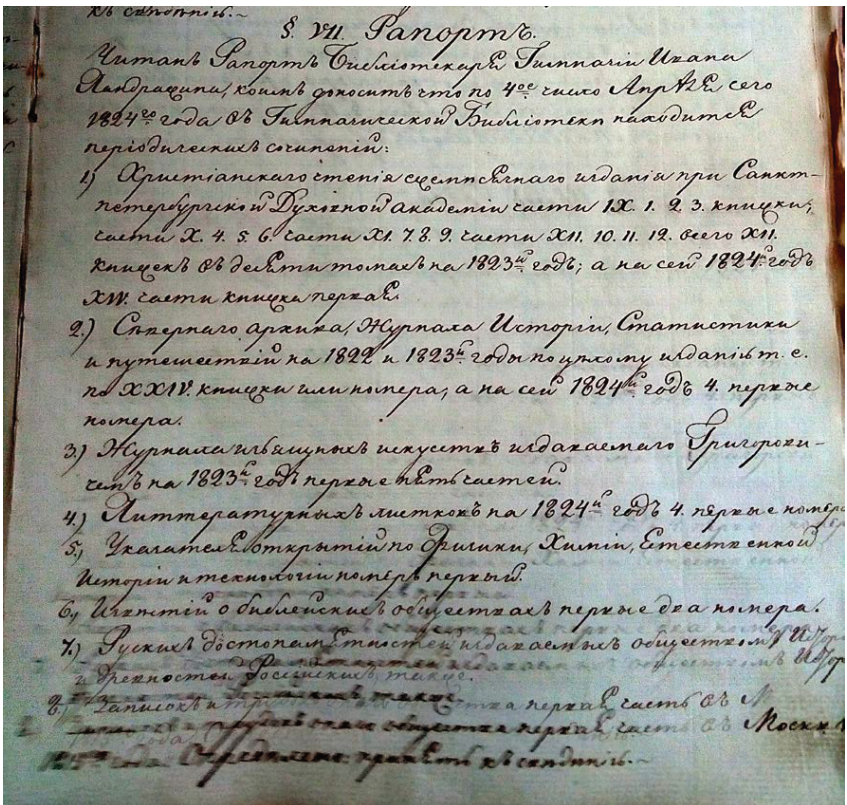 къ свѣдѣнію.~
§. VII. Рапортъ.
Читанъ Рапортъ Библіотекаря Гимназіи Ивана
коимъ доноситъ что по 4ое число Апрѣля сего
1824го года въ Гимназической Библіотеки находится
періодическихъ сочиненій:
1.) Христіанскаго чтенія ежемѣсячнаго изданія при Санкт-
петербургской Духовной Академіи части IX. 1. 2. 3. книжки;
части X. 4. 5. 6. части XI. 7. 8. 9. части XII. 10. 11. 12. всего XII.
книжекъ въ десяти томахъ на 1823й годъ; а на сей 1824й годъ
XIV. части книжка первая.
2.) Сѣвернаго архива, Журнала Исторіи, Статистики
и путешествій на 1822 и 1823й годы по цѣлому изданію т. е.
по XXIV. книжки или номера; а на сей 1824й годъ 4. первые
номера.
3.) Журнала изъящныхъ искуствъ издаваемаго Григорови-
чемъ на 1823й годъ первые пять частей.
4.) Литтературныхъ листковъ на 1824й годъ 4. первые номера
5.) Указателя открытій по Физики, Химіи, Естественной
Исторіи и технологіи номеръ первый.
6.) Извѣстій о библейскихъ обществахъ первые два номера.
7.) Рускихъ достопамятностей издаваемыхъ обществомъ
и древностей Россійскихъ также.
8.) Записокъ и трудовъ онаго общества первая часть въ М
общества первая часть въ Москв
года. Опредѣлено: принять къ свѣдѣнію.~